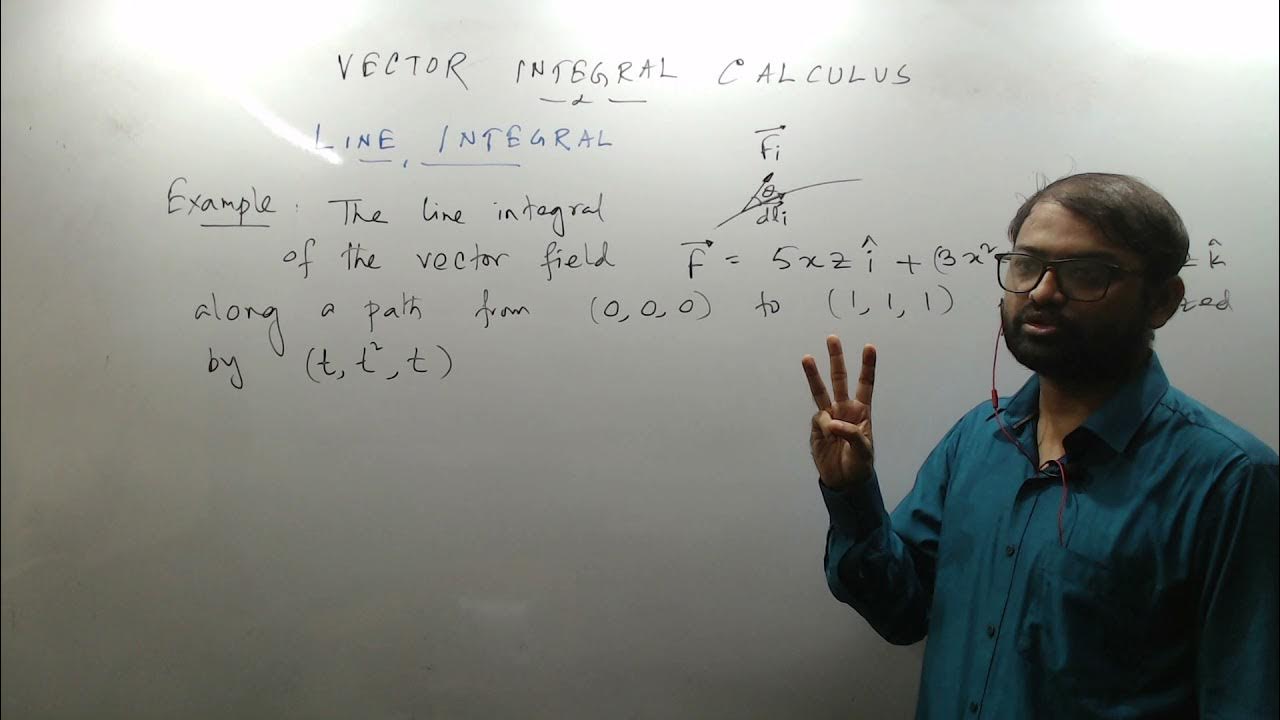 VECTOR INTEGRAL CALCULUS
LINE INTEGRAL
F⃗i
θ
dli
Example : The line integral
of the vector field F⃗ = 5xz î + (3x² k̂
along a path from (0,0,0) to (1,1,1)
by (t, t², t)